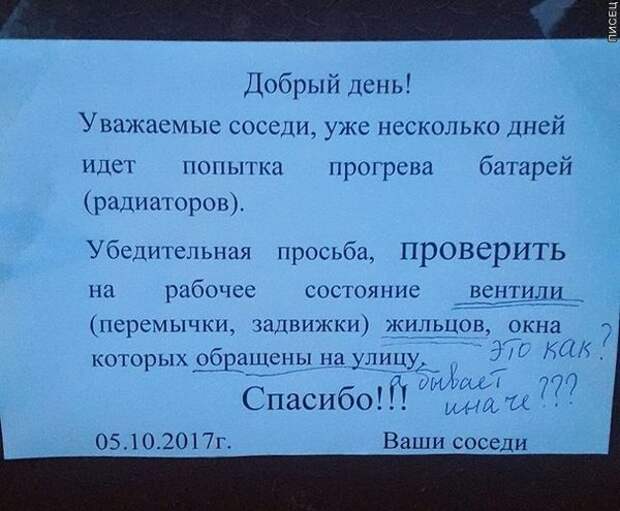 ПИСЕЦ
Добрый день!
Уважаемые соседи, уже несколько дней
идет попытка прогрева батарей
(радиаторов).
Убедительная просьба, проверить
на рабочее состояние вентили
(перемычки, задвижки) жильцов, окна
которых обращены на улицу. это как?
а бывает
Спасибо!!! иначе???
05.10.2017г. Ваши соседи